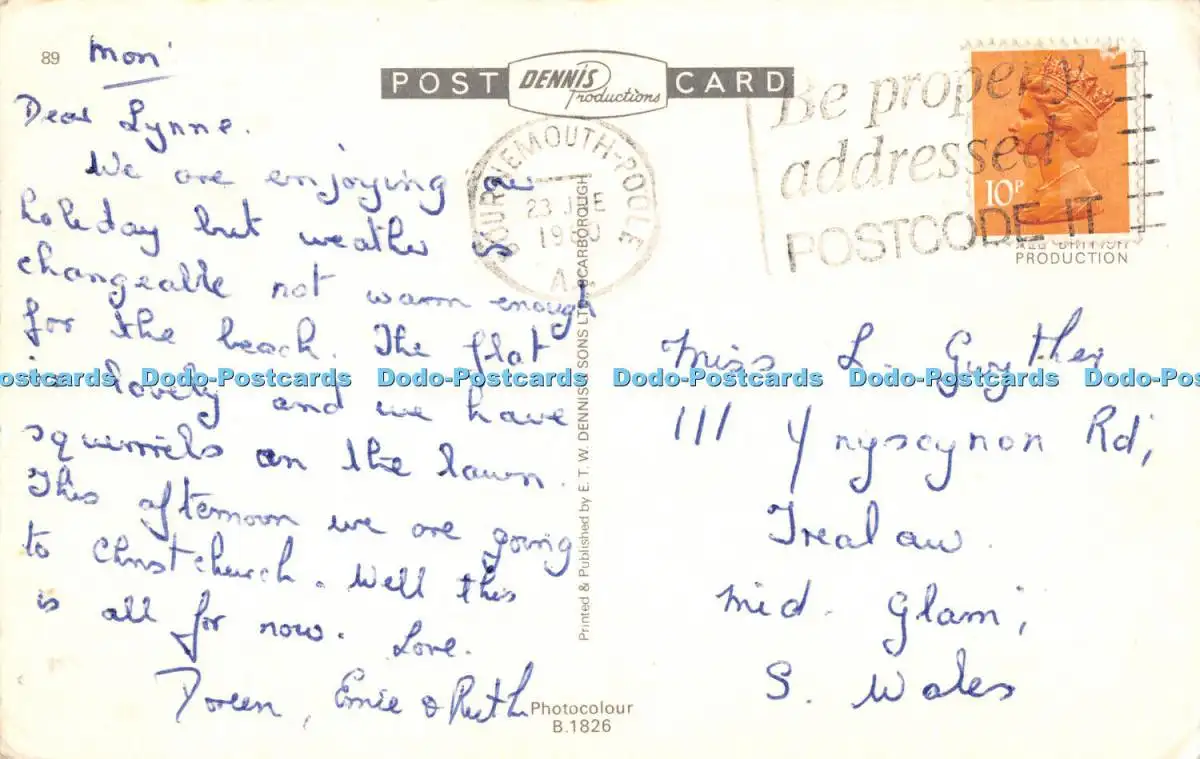 89
Mon'
Dear Lynne.
We are enjoying our
holiday but weather is
changeable not warm enough
for the beach. The flat
is lovely and we have
squirrels on the lawn.
This afternoon we are going
to Christchurch. Well this
is all for now. Love.
Doreen, Ernie & Ruth
POST CARD
DENNIS
Productions
BOURNEMOUTH-POOLE
1980
Be properly
addressed
POSTCODE IT
10P
ALL BRITISH
PRODUCTION
Printed & Published by E. T. W. DENNIS & SONS LTD., SCARBOROUGH
Miss L. Gwyther
111 Ynyscynon Rd,
Trealaw.
Mid. Glam,
S. Wales
Photocolour
B.1826
Dodo-Postcards Dodo-Postcards Dodo-Postcards Dodo-Postcards Dodo-Postcards Dodo-Postcards